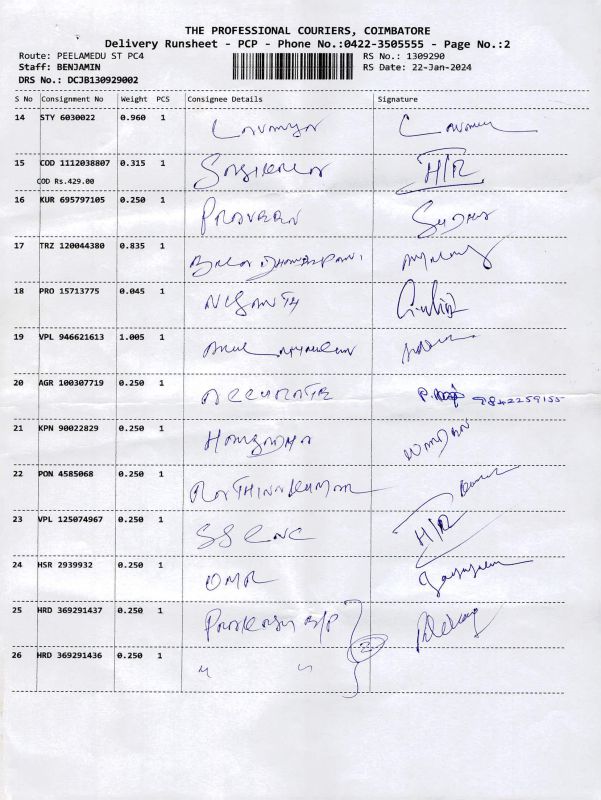 THE PROFESSIONAL COURIERS, COIMBATORE
Delivery Runsheet - PCP - Phone No.:0422-3505555 - Page No.:2
Route: PEELAMEDU ST PC4 RS No.: 1309290
Staff: BENJAMIN RS Date: 22-Jan-2024
DRS No.: DCJB130929002
S No Consignment No Weight PCS Consignee Details Signature
14 STY 6030022 0.960 1 Lavanya
15 COD 1112038807 0.315 1 Sasikala H/R
COD Rs.429.00
16 KUR 695797105 0.250 1 Praveen
17 TRZ 120044380 0.835 1
18 PRO 15713775 0.045 1 NISANTH
19 VPL 946621613 1.005 1
20 AGR 100307719 0.250 1 ACCURATE 9842259155
21 KPN 90022829 0.250 1
22 PON 4585068 0.250 1 RATHINAKUMAR
23 VPL 125074967 0.250 1 SS CNC H/R
24 HSR 2939932 0.250 1 OMR
25 HRD 369291437 0.250 1
26 HRD 369291436 0.250 1 〃 〃 2